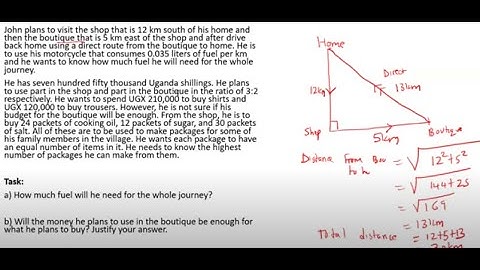 John plans to visit the shop that is 12 km south of his home and
then the boutique that is 5 km east of the shop and after drive
back home using a direct route from the boutique to home. He is
to use his motorcycle that consumes 0.035 liters of fuel per km
and he wants to know how much fuel he will need for the whole
journey.
He has seven hundred fifty thousand Uganda shillings. He plans
to use part in the shop and part in the boutique in the ratio of 3:2
respectively. He wants to spend UGX 210,000 to buy shirts and
UGX 120,000 to buy trousers. However, he is not sure if his
budget for the boutique will be enough. From the shop, he is to
buy 24 packets of cooking oil, 12 packets of sugar, and 30 packets
of salt. All of these are to be used to make packages for some of
his family members in the village. He wants each package to have
an equal number of items in it. He needs to know the highest
number of packages he can make from them.
Task:
a) How much fuel will he need for the whole journey?
b) Will the money he plans to use in the boutique be enough for
what he plans to buy? Justify your answer.
Home
Direct
12km
13km
Shop
5km
Boutique
Distance from Bou to h = √12²+5²
= √144+25
= √169
= 13km
Total distance = 12+5+13